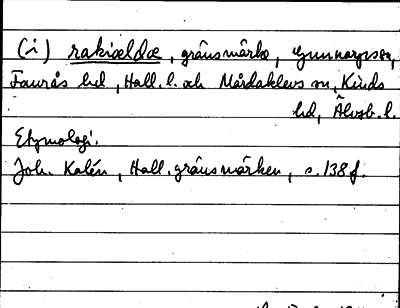 (i) rakiældæ, gränsmärke, Gunnarpssn,
Faurås hd, Hall. l. och Mårdaklevs sn, Kinds
hd, Älvsb. l.
Etymologi.
Joh. Kalén, Hall. gränsmärken, s. 138 f.